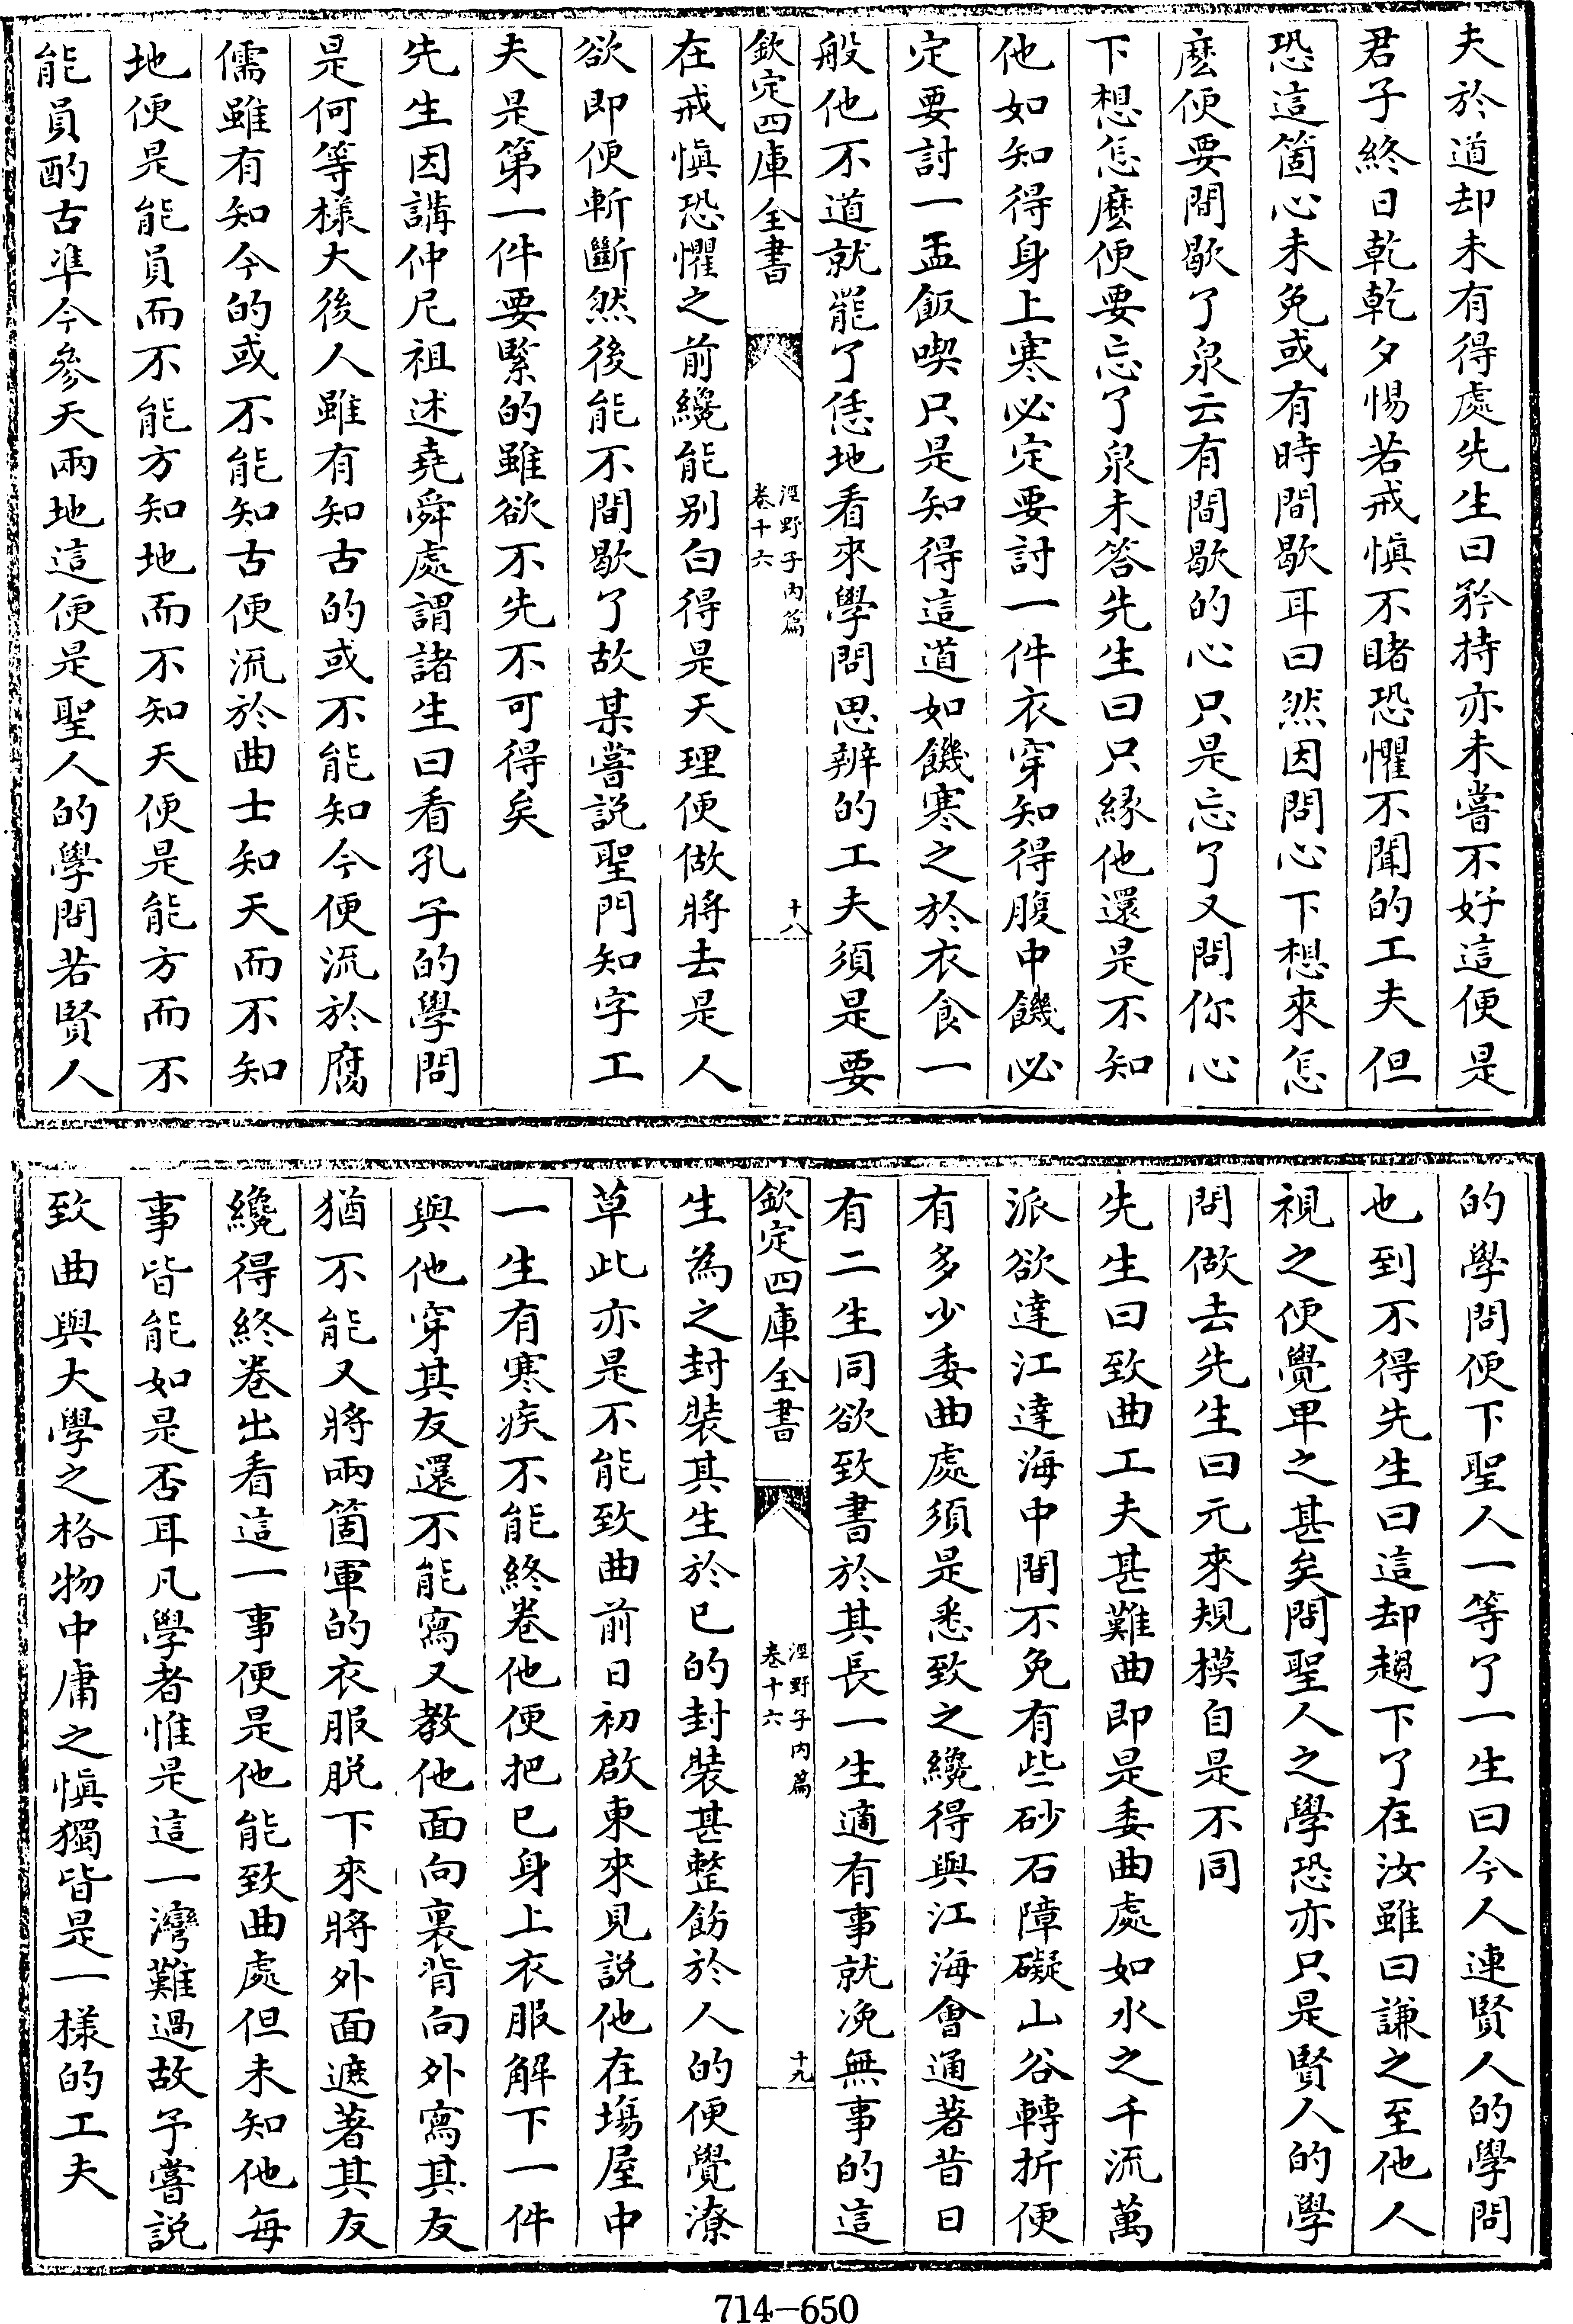 夫於道却未有得處先生曰矜持亦未嘗不好這便是
君子終日乾乾夕惕若戒慎不睹恐懼不聞的工夫但
恐這箇心未免或有時間歇耳曰然因問心下想來怎
麽便要間歇了泉云有間歇的心只是忘了又問你心
下想怎麽便要忘了泉未答先生曰只緣他還是不知
他如知得身上寒必定要討一件衣穿知得腹中饑必
定要討一盂飯喫只是知得這道如饑寒之於衣食一
般他不道就罷了恁地看來學問思辨的工夫須是要
欽定四庫全書
涇野子内篇
卷十六
十八
在戒慎恐懼之前纔能别白得是天理便做將去是人
欲即便斬斷然後能不間歇了故某嘗説聖門知字工
夫是第一件要緊的雖欲不先不可得矣
先生因講仲尼祖述堯舜處謂諸生曰看孔子的學問
是何等樣大後人雖有知古的或不能知今便流於腐
儒雖有知今的或不能知古便流於曲士知天而不知
地便是能員而不能方知地而不知天便是能方而不
能員酌古凖今參天兩地這便是聖人的學問若賢人
的學問便下聖人一等了一生曰今人連賢人的學問
也到不得先生曰這却趨下了在汝雖曰謙之至他人
視之便覺卑之甚矣問聖人之學恐亦只是賢人的學
問做去先生曰元來規模自是不同
先生曰致曲工夫甚難曲即是委曲處如水之千流萬
派欲達江達海中間不免有些砂石障礙山谷轉折便
有多少委曲處須是悉致之纔得與江海會通著昔日
有二生同欲致書於其長一生適有事就浼無事的這
欽定四庫全書
涇野子内篇
卷十六
十九
生為之封裝其生於已的封裝甚整飭於人的便覺潦
草此亦是不能致曲前日初啟東來見説他在塲屋中
一生有寒疾不能終卷他便把已身上衣服解下一件
與他穿其友還不能寫又教他面向裏背向外寫其友
猶不能又將兩箇軍的衣服脱下來將外面遮著其友
纔得終卷出看這一事便是他能致曲處但未知他每
事皆能如是否耳凡學者惟是這一灣難過故予嘗説
致曲與大學之格物中庸之慎獨皆是一樣的工夫
714-650